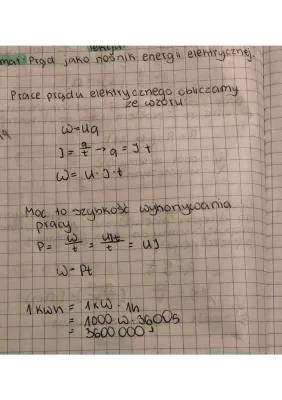 lekcja
mat: Prąd jako nośnik energii elektrycznej.
Prace prądu elektrycznego obliczamy
ze wzoru
W=Uq
I = q/t → q = I t
W = U · I · t
Moc to szybkość wykonywania
pracy
P = W/t = UIt/t = UI
W = Pt
1 kWh = 1kW · 1h
= 1000 W · 3600s
= 3600 000 J